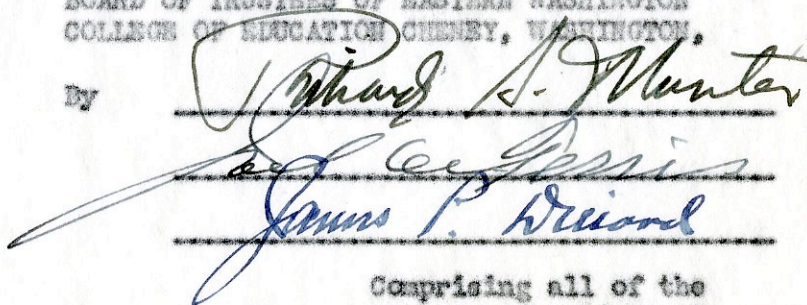 BOARD OF TRUSTEES OF EASTERN WASHINGTON
COLLEGE OF EDUCATION CHENEY, WASHINGTON,
By Richard S. Munter
James P. Dillard
Comprising all of the